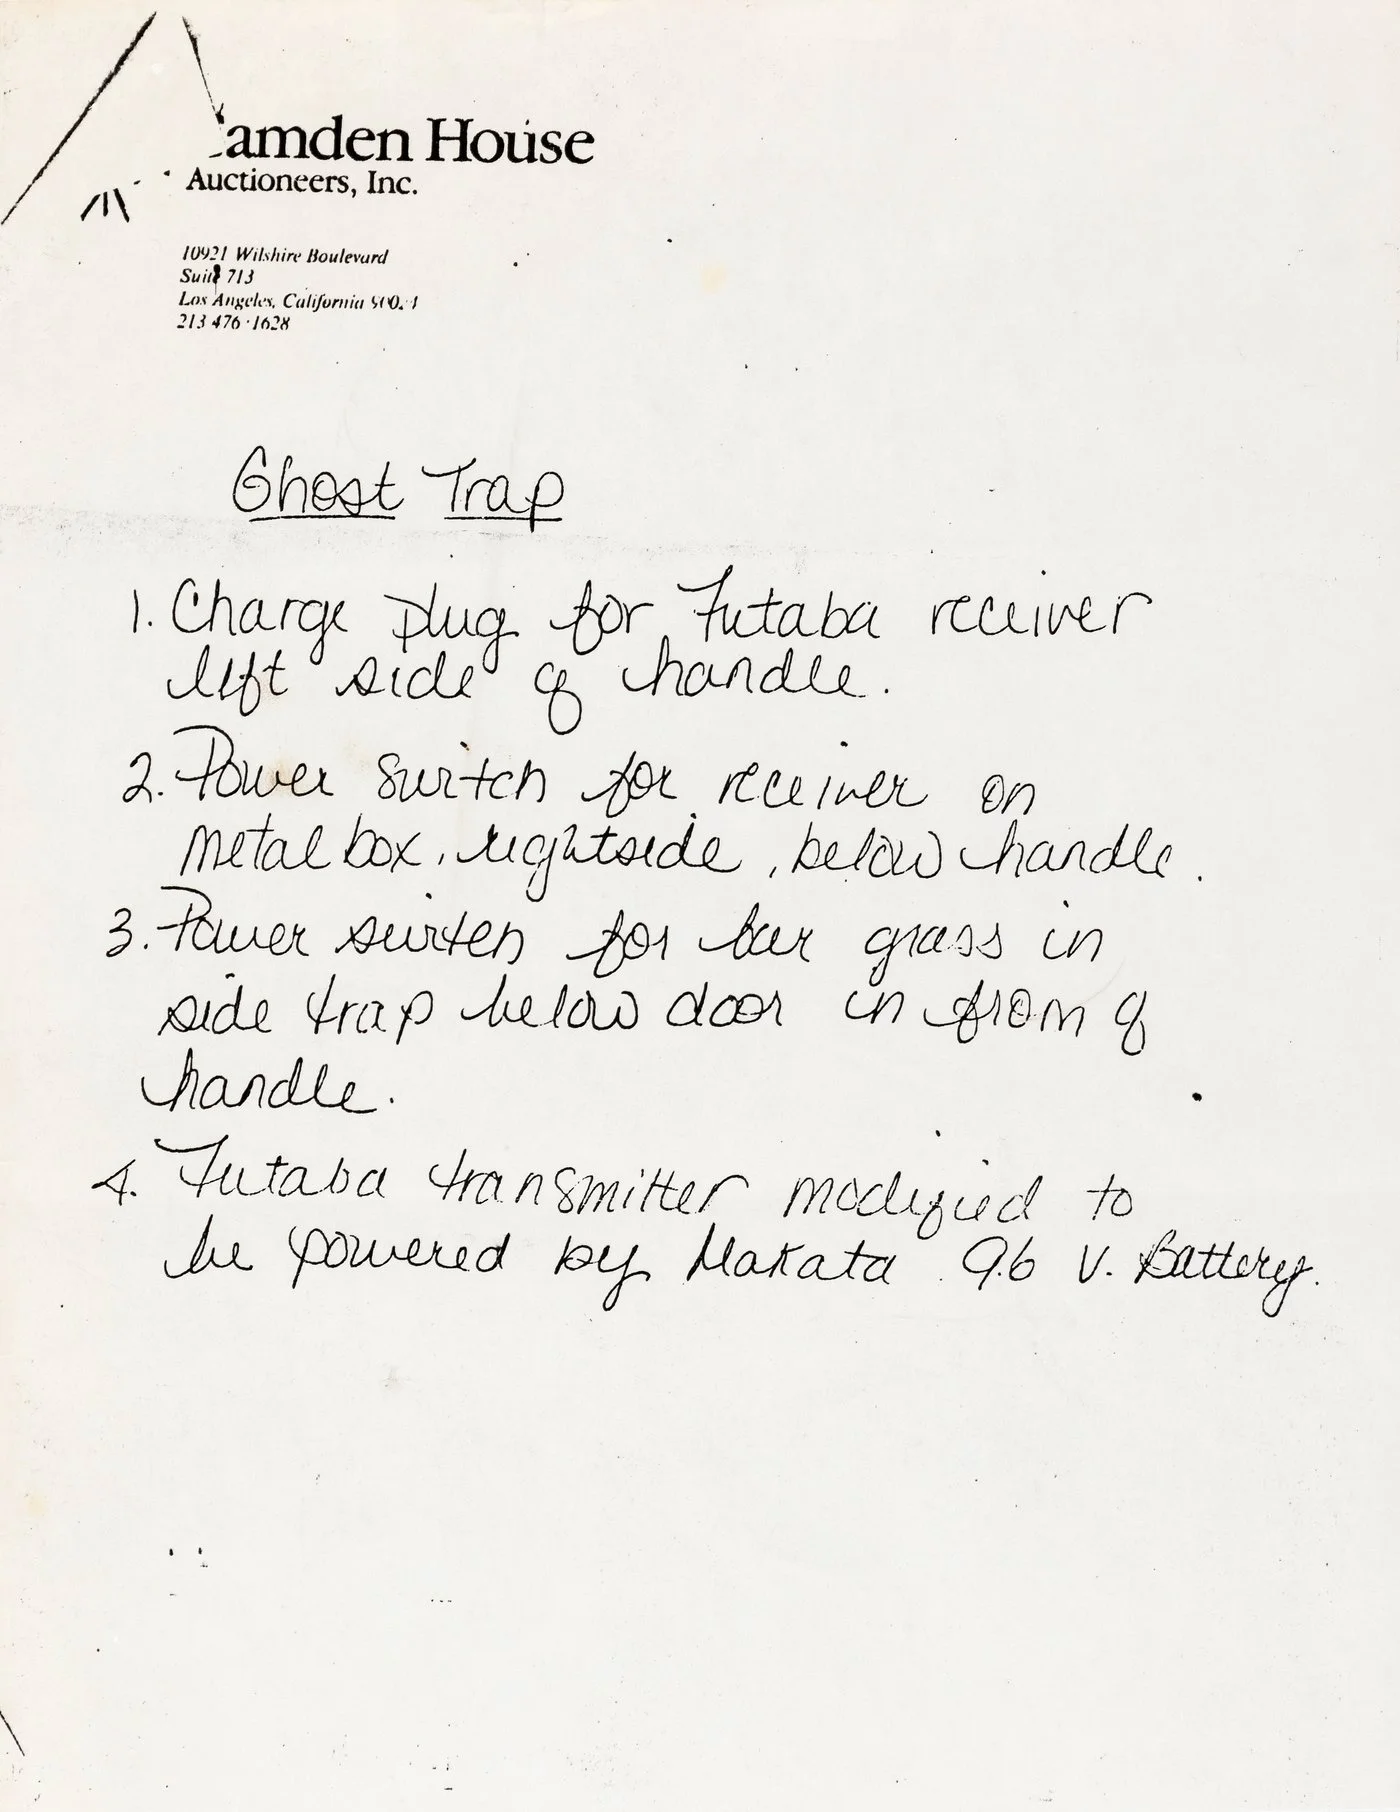 amden House
Auctioneers, Inc.
10921 Wilshire Boulevard
Suite 713
Los Angeles, California
213 476-1628
Ghost Trap
1. Charge plug for Futaba receiver
left side of handle.
2. Power switch for receiver on
metal box, rightside, below handle.
3. Power switch for bar grass in
side trap below door in from of
handle.
4. Futaba transmitter modified to
be powered by Makata 9.6 V. Battery.